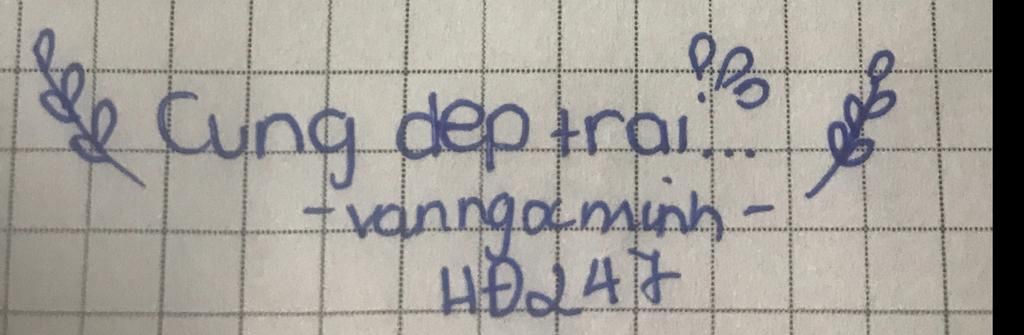 Cung dep trai...
-vanngaminh-
HĐ247